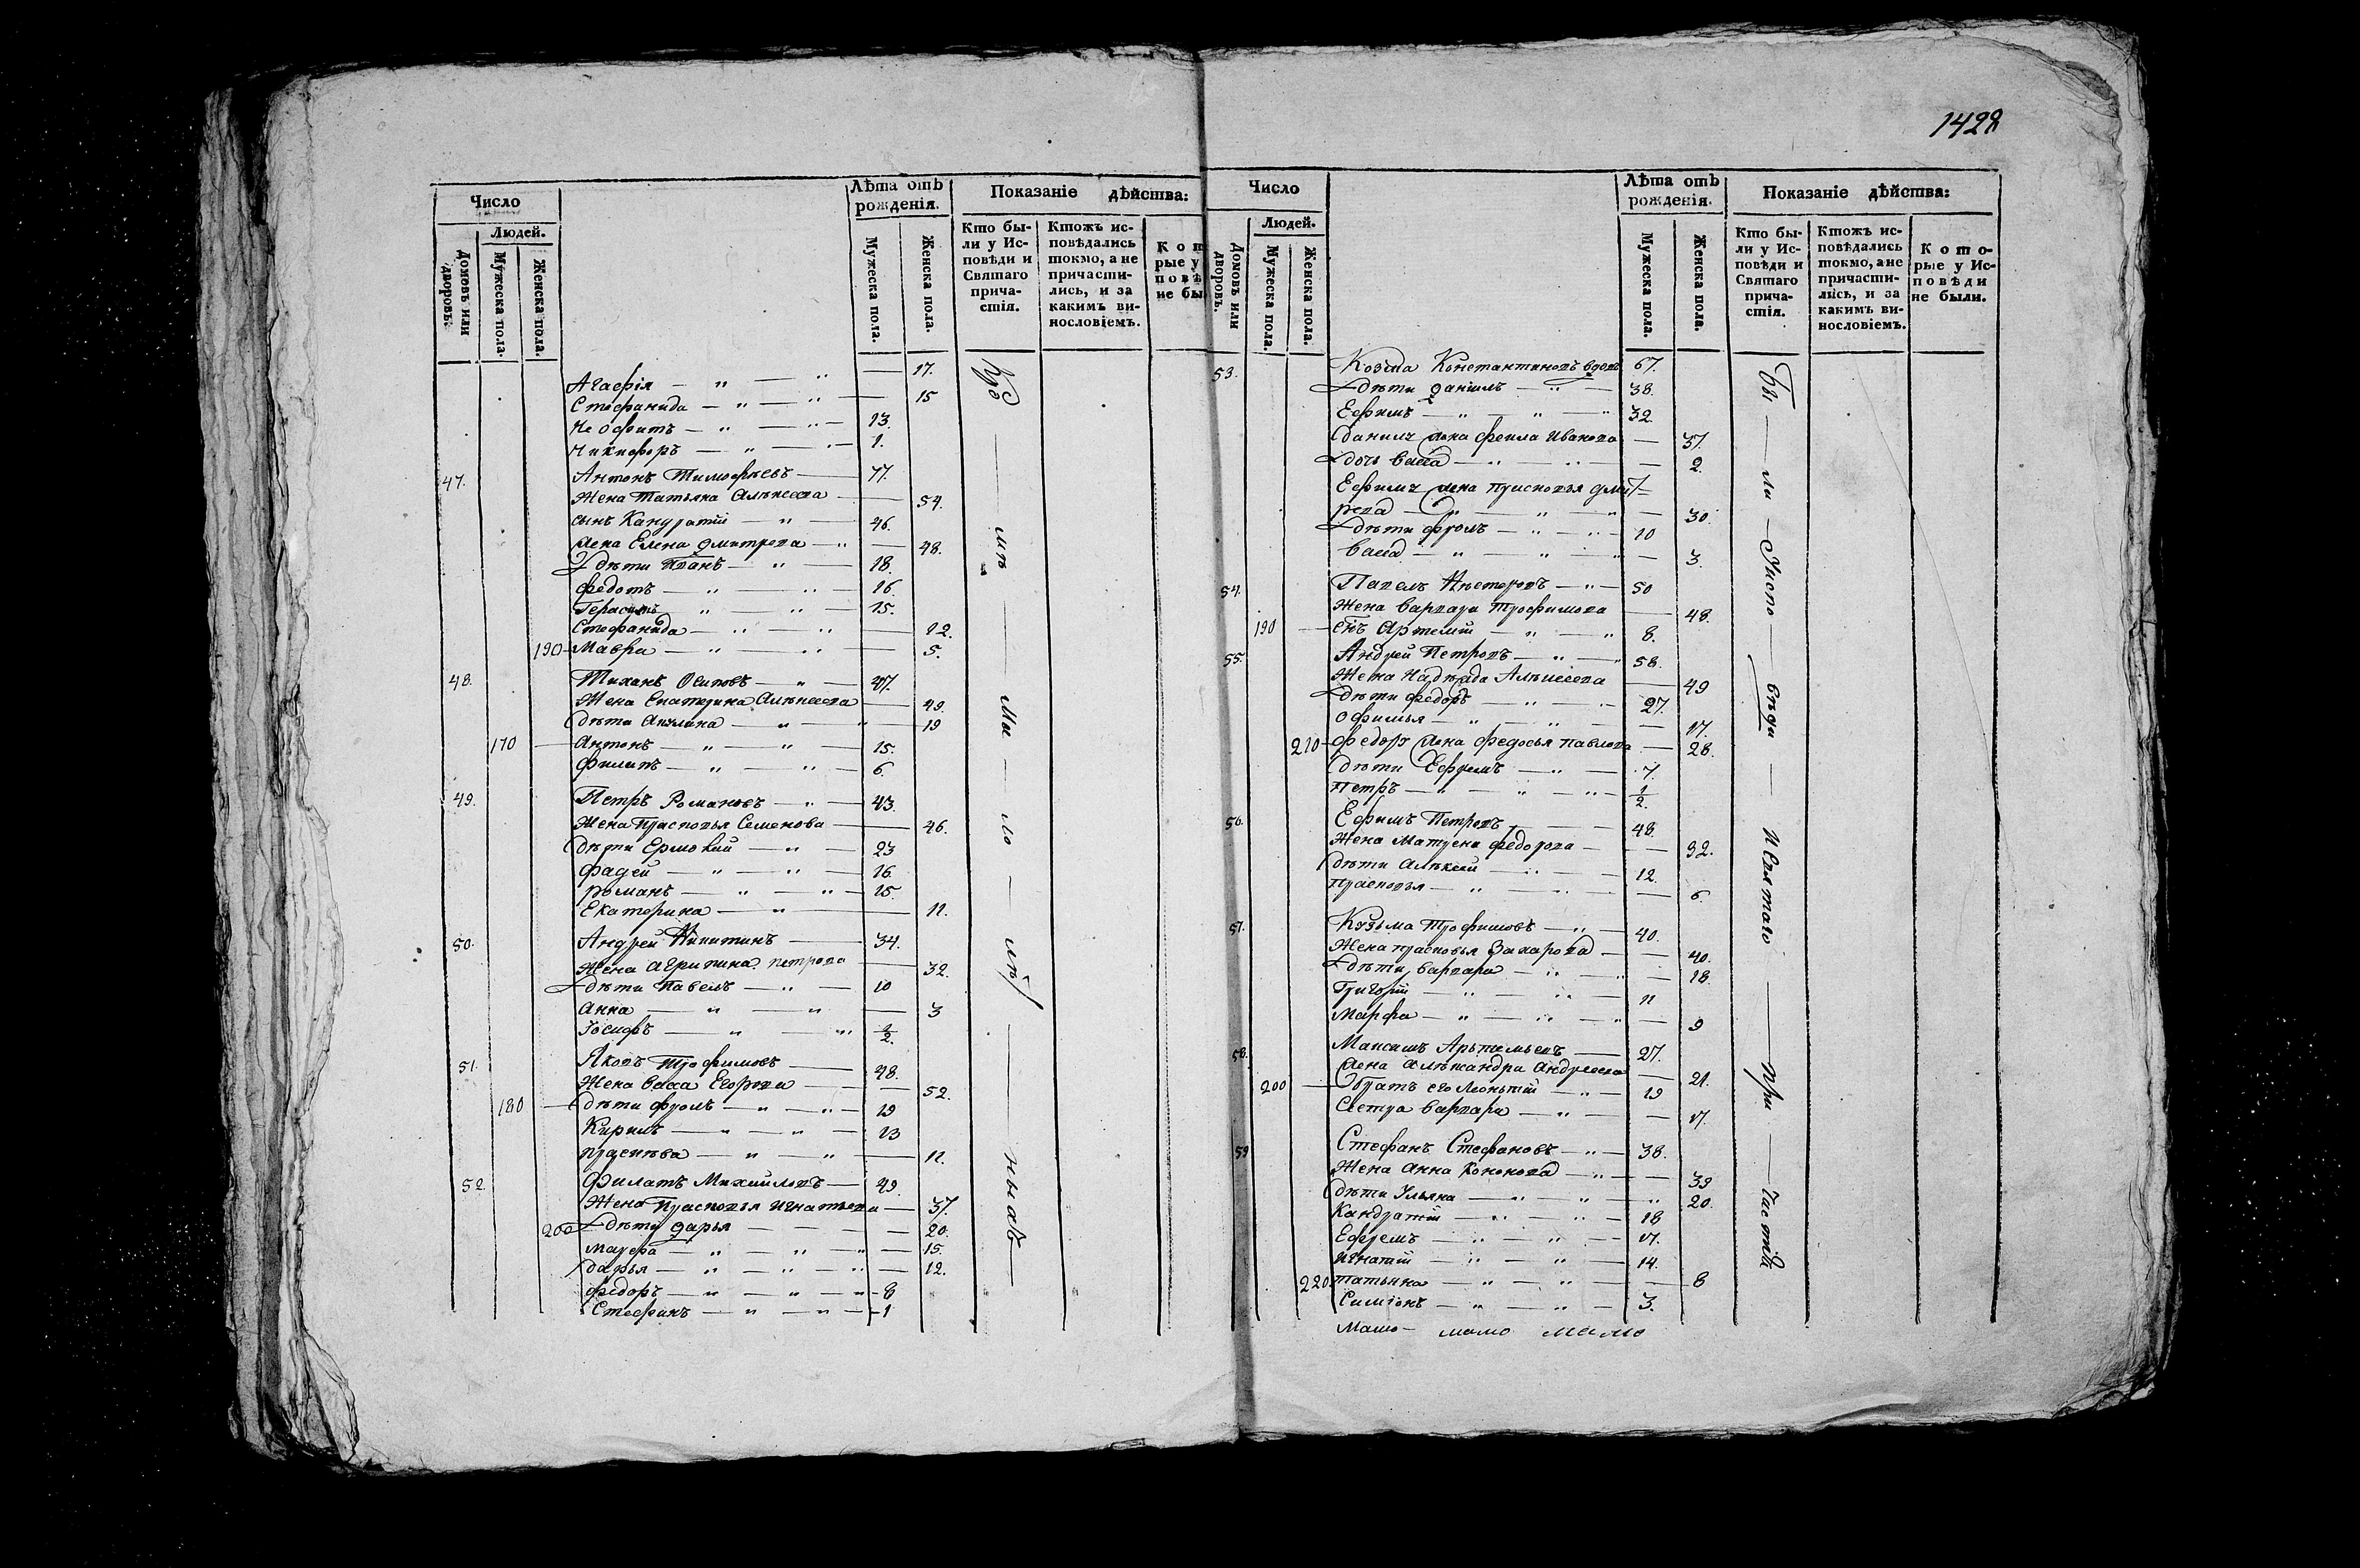 1428
Число
Людей.
Домовъ или дворовъ.
Мужеска пола.
Женска пола.
Лѣта отъ рожденія.
Мужеска пола.
Женска пола.
Показаніе дѣйства:
Кто бы-
ли у Ис-
повѣди и
Святаго
прича-
стія.
Ктожъ ис-
повѣдались
токмо, а не
причасти-
лись, и за
какимъ ви-
нословіемъ.
Кот
рые у
повѣ
не бы
Агафія — " — " — 17.
Стефанида — " — " — 15
Неофитъ — " — " — 13.
Никифоръ — " — " — 1.
47. Антонъ Тимофѣевъ — 77.
Жена Татьяна Алѣксева — 54.
сынъ Кандратій — " — 46.
жена Елена Дмитрева — " — 48.
дѣти Иванъ — " — 18.
Федотъ — " — 16.
Герасимъ — " — " — 15.
Стефанида — " — " — 12.
190 Мавра — " — " — 5.
48. Тихонъ Осиповъ — " — 47.
Жена Екатерина Алѣксева — 49.
дѣти Акулина — " — " 19
170 Антонъ — " — " — 15.
Филипъ — " — " — 6.
49. Петръ Романовъ — " — 43.
Жена Прасковья Семенова — 46.
дѣти Ермолай — " — 23
Фадей — " — " — 16.
Романъ — " — " — 15.
Екатерина — " — 11.
50. Андрей Никитинъ — 34.
Жена Агрипина Петрова — 32.
дѣти Павелъ — " — 10
Анна — " — " — 3
Іосифъ — " — " 1/2.
51. Яковъ Трофимовъ — 48.
Жена Васса Егорова — 52.
180 дѣти Фролъ — " — " — 19
Кирилъ — " — " — 13
— " — " — 11.
52. Филатъ Михайловъ — 49.
Жена Прасковья Игнатьева — 37.
200 дѣти Дарья — 20.
Марфа — " — " — " — 15.
Дарья — " — " — " — 12.
Федоръ — " — " — " — 8
Стефанъ — " — " — 1
Число
Людей.
Домовъ или дворовъ.
Мужеска пола.
Женска пола.
Лѣта отъ рожденія.
Мужеска пола.
Женска пола.
Показаніе дѣйства:
Кто бы-
ли у Ис-
повѣди и
Святаго
прича-
стія.
Ктожъ ис-
повѣдались
токмо, а не
причасти-
лись, и за
какимъ ви-
нословіемъ.
Кото-
рые у Ис-
повѣди
не были.
53. Козма Константиновъ вдовъ 67.
дѣти Данилъ — " — 38.
Ефимъ — " — " — " 32.
Данилы жена Иванова — 37.
дочь Васса — " — " — 2.
Ефима жена Прасковья Дмит
рева — " — " — " — 30.
дѣти Фролъ — " — " — 10
Васса — " — " — " — 3.
54. Павелъ Нестеровъ — " — 50
Жена Варвара Трофимова — 48.
190 сынъ Артемій — " — " 8.
55. Андрей Петровъ — " — " 58.
Жена Надежда Алѣксева — 49
дѣти Федоръ — " — " 27.
Офимья — " — " — 17.
210 Федора жена Федосья Павлова — 28.
дѣти Ефремъ — " — 7.
Петръ — " — " — " — 1/2.
56. Ефимъ Петровъ — 48.
Жена Матрена Федорова — 32.
дѣти Алѣксей — " — 12.
Прасковья — " — " — 6.
57. Кузьма Трофимовъ — " — 40.
Жена Прасковья Захарова — 40.
дѣти Варвара — " — " 18.
Григорій — " — " — 11
Марфа — " — " — " — 9
58. Максимъ Артемьевъ — 27.
жена Алѣксандра Андреева — 21.
200 братъ его Леонтій — " — 19
Сестра Варвара — " — 17.
59 Стефанъ Стефановъ — " — 38.
Жена Анна Кононова — " — 39
дѣти Ульяна — " — " — " 20.
Кандратій — " — " — 18
Ефремъ — " — " — 17.
Игнатій — " — " — 14.
220 Татьяна — " — " — 8
Симіонъ — " — " — 3.
Бы — ли — Испо — вѣди — И Святаго — При — частія